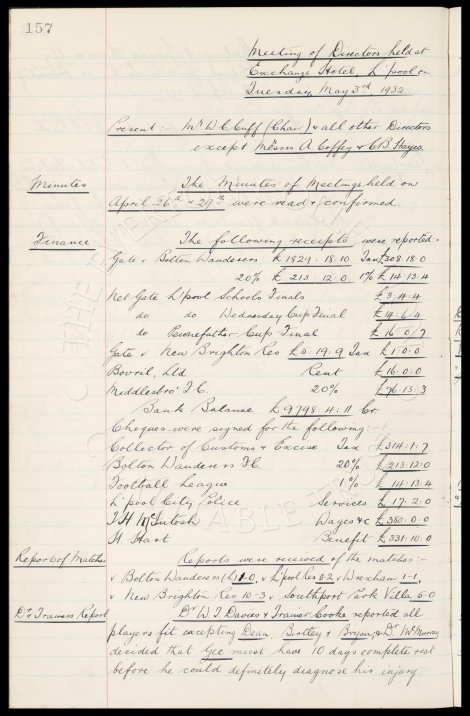 157
Meeting of Directors held at
Exchange Hotel, L'pool on
Tuesday, May 3rd, 1932
Present:- Mr W.C. Cuff (Chair) & all other Directors
except Messrs A Coffey & C.B. Hayes.
Minutes The Minutes of Meetings held on
April 26th & 29th were read & confirmed.
Finance The following receipts were reported:-
Gate v Bolton Wanderers £1829:18:10 Tax £308:18:0
20% £213:12:0 1% £14:13:4
Net Gate L'pool Schools Finals £3:4:4
do do Wednesday Cup Final £14:6:4
do Pennefather Cup Final £16:0:7
Gate v New Brighton Res £5:19:9 Tax £1:0:0
Bovril, Ltd Rent £16:0:0
Middlesbro' F.C. 20% £76:13:3
Bank Balance £9798:4:11 Cr
Cheques were signed for the following:-
Collector of Customs & Excise Tax £314:1:7
Bolton Wanderers F.C. 20% £213:12:0
Football League 1% £14:13:4
L'pool City Police Services £17:2:0
T H McIntosh Wages &c £380:0:0
H Hart Benefit £331:10:0
Report of Matches Reports were received of the matches:-
v Bolton Wanderers (L) 1-0, v L'pool Res 0-2, v Wrexham 1-1,
v New Brighton Res 10-3 v Southport Park Villa 5-0
Dr & Trainers Report Dr W.J. Davies & Trainer Cooke reported all
players fit excepting Dean, Bentley & Bryan, & Dr McMurray
decided that Gee must have 10 days complete rest
before he could definitely diagnose his injury.